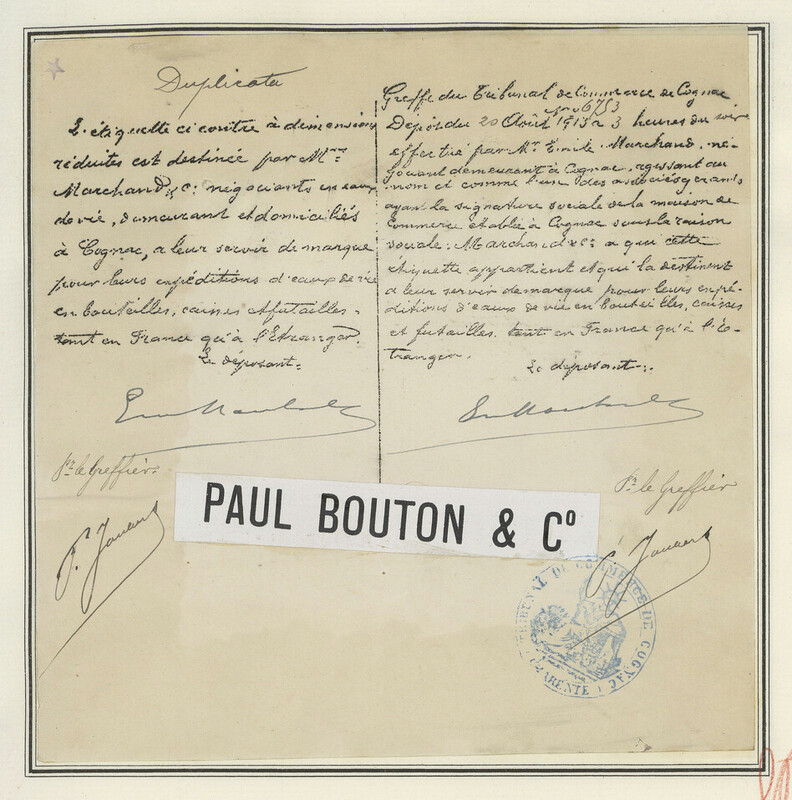 Duplicata
L'étiquette ci contre à dimensions
réduites est destinée par Mrs
Marchand & Cie négociants en eaux
de vie, demeurant et domiciliés
à Cognac, a leur servir de marque
pour leurs expéditions d'eaux de vie
en bouteilles, caisses et futailles
tant en France qu'à l'Etranger.
Le déposant
Pr le Greffier
Greffe du Tribunal de Commerce de Cognac
No 6753
Dépôt du 20 Août 1913 à 3 heures du soir
effectué par Mr Emile Marchand, né-
gociant demeurant à Cognac, agissant au
nom et comme l'un des associés gérants
ayant la signature sociale de la maison de
Commerce établie à Cognac sous la raison
sociale: Marchand & Cie a qui cette
étiquette appartient et qui la destinent
a leur servir de marque pour leurs expé-
ditions d'eaux de vie en bouteilles, caisses
et futailles, tant en France qu'à l'é-
tranger.
Le déposant
Pr le Greffier
PAUL BOUTON & Co
TRIBUNAL DE COMMERCE DE COGNAC
CHARENTE